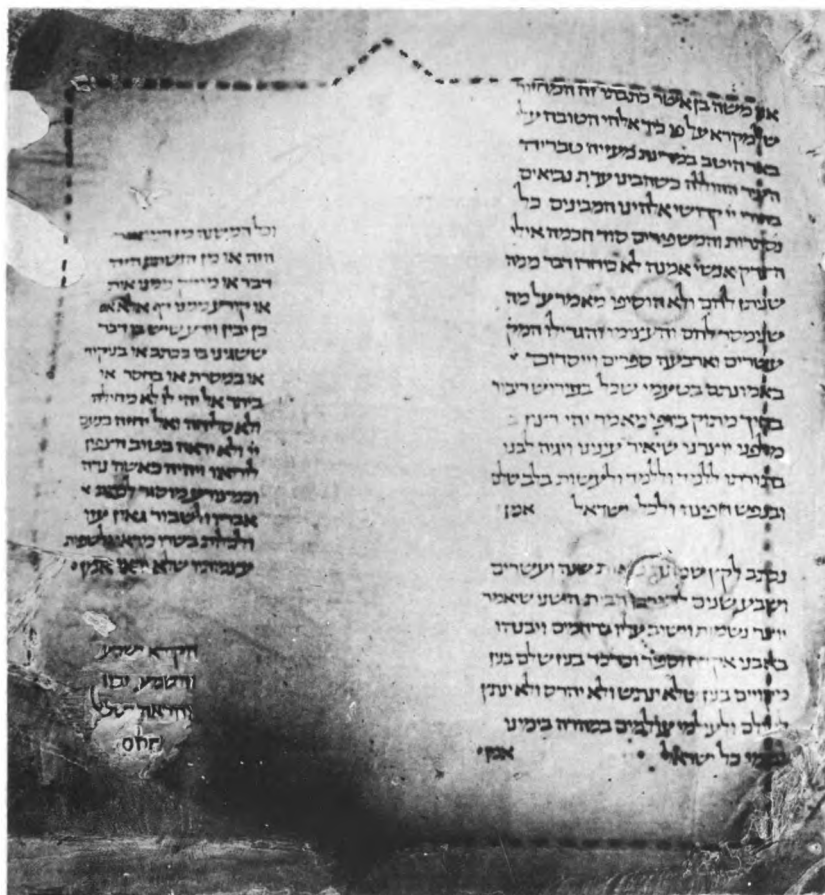 אני משה בן אשר כתבתי זה המחזור
של מקרא על פי כיד אלהי הטובה עלי
באר היטב במדינת מעזיה טבריה
העיר ההוללה כשהבינו עדת נביאים
בחורי יי קדושי אלהינו המבינים כל
נסתרות והמשפירים סוד חכמה אילי
הצדק אנשי אמנה לא כיחדו דבר ממה
שניתן להם ולא הוסיפו מאמר על מה
שנמסר להם והעצימו והגדילו המק
עשרים וארבעה ספרים וייסדום
באמונתם בטעמי שכל בפירוש דיבור
בחיך מתוק ביופי מאמר יהי רצון
מלפני יוצרנו שיאיר עינינו ויגיה לבנו
בתורתו ללמוד וללמד ולעשות בלב שלם
ובנפש חפיצה ולכל ישראל אמן
נכתב לקץ שמונה מאות שנה ועשרים
ושבע שנים לחורבן הבית השני שיאמר
יוצר נשמות וישוב עליו ברחמים ויבנהו
באבני אקדח וספיר וכדכד בנין שלם בנין
בנין שלא ינתש ולא יהרס ולא ינתץ
לעולם ולעולמי עולמים במהרה בימינו
ובימי כל ישראל אמן
וכל
היה או מן היה
דבר או ממנו אות
או יקרע ממנו דף
כן יבין וידע שיש בו דבר
ששגינו בו בכתב או בניקוד
או במסרת או בחסר או
ביתר אל יהי לו לא מחילה
ולא סליחה ואל יחזה בנעם
יי ולא יראה בטוב הצפון
ליראיו ויהיה כאשה נדה
וכמצורע מוסגר
אבריו ולשבור גאון עוזו
ולכלות בשרו מראי ולשפות
עצמותיו שלא יראו אמן
הקורא ישמע
והשמע יבין
והראה